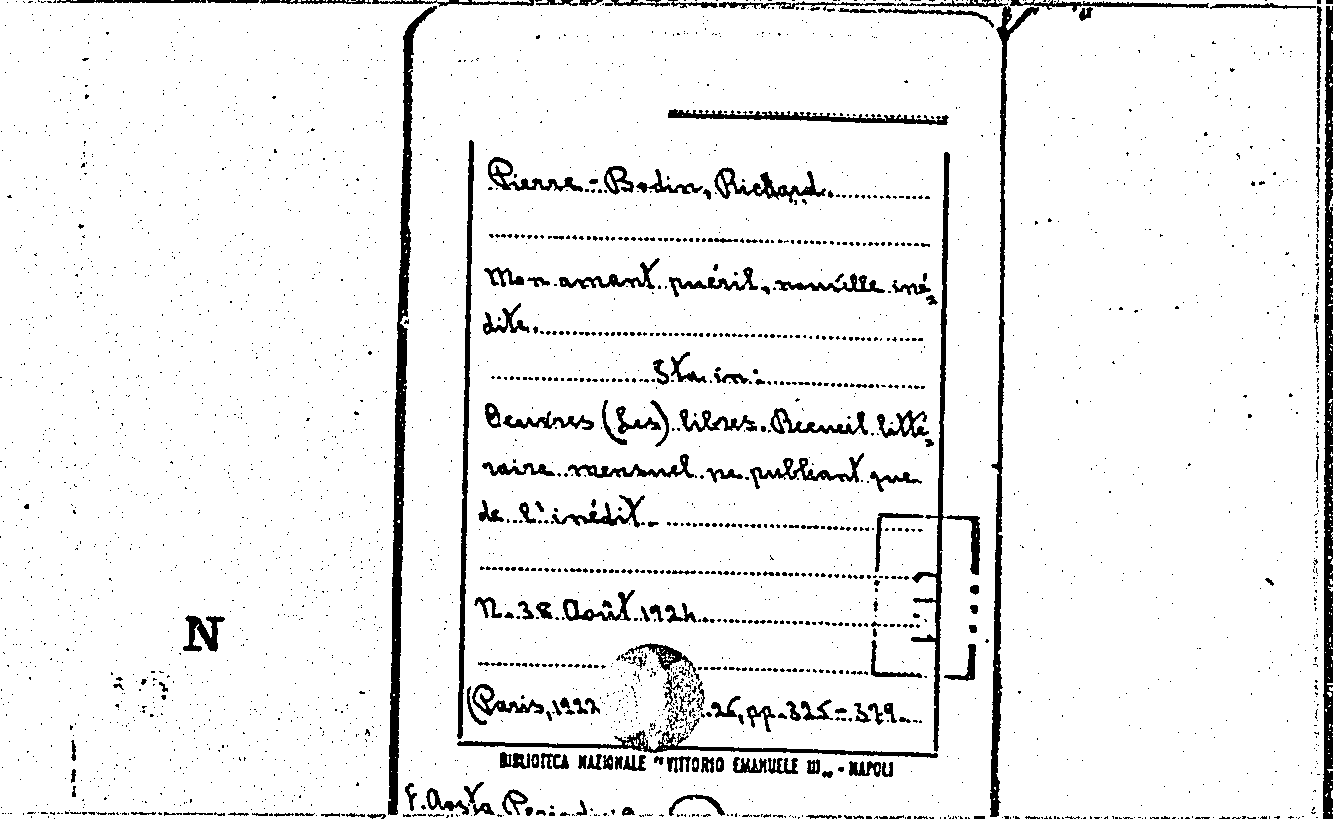 Pierre-Bodin, Richard.
Mon amant puéril, nouvelle iné-
dite.
Sta in:
Oeuvres (Les) libres. Recueil litté-
raire mensuel ne publiant que
de l'inédit.
N. 38 Août 1924.
(Paris, 1922 25, pp. 325-379.
BIBLIOTECA NAZIONALE "VITTORIO EMANUELE III" - NAPOLI
F. Aosta
N